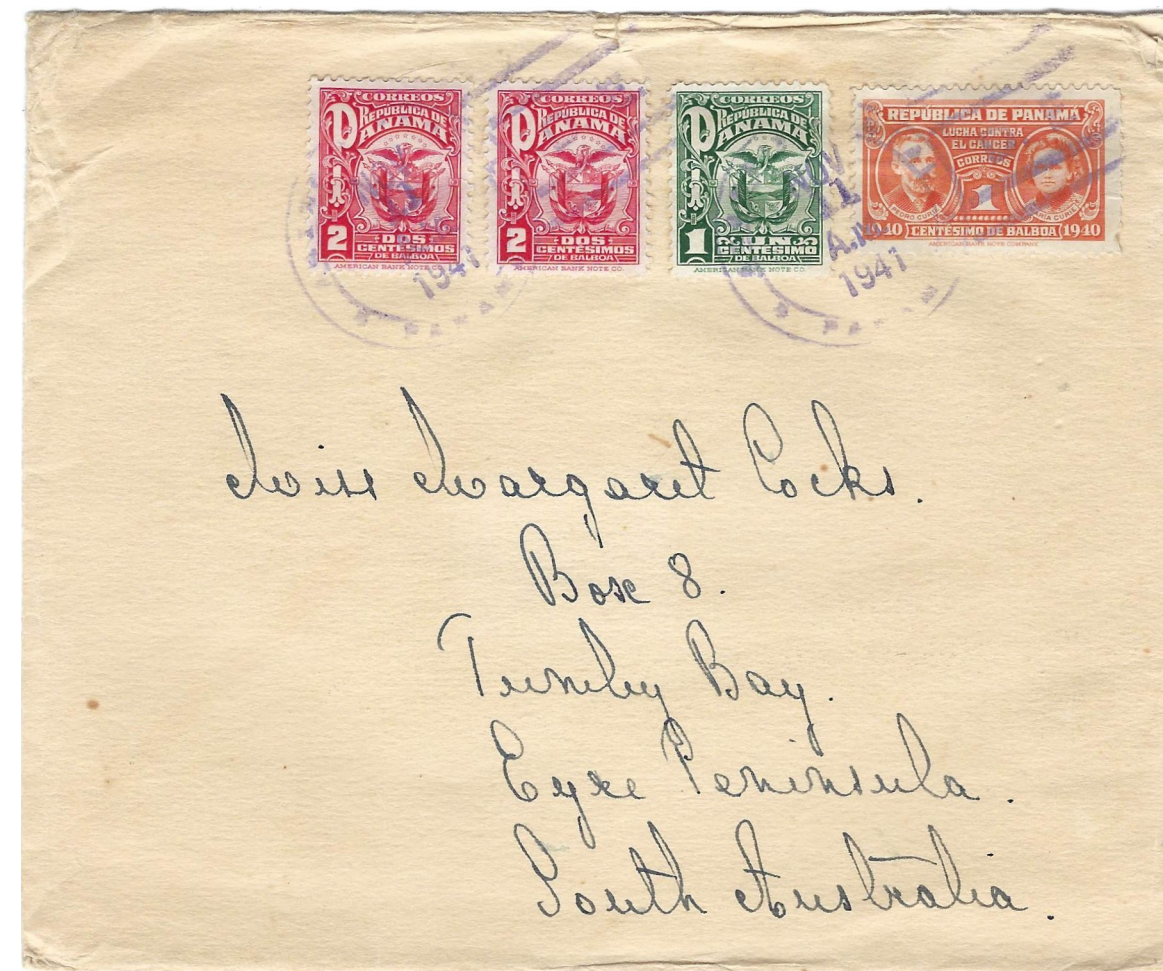 CORREOS
REPÚBLICA DE
PANAMA
2
DOS
CENTÉSIMOS
DE BALBOA
AMERICAN BANK NOTE CO.
CORREOS
REPÚBLICA DE
PANAMA
2
DOS
CENTÉSIMOS
DE BALBOA
AMERICAN BANK NOTE CO.
CORREOS
REPÚBLICA DE
PANAMA
1
UN
CENTÉSIMO
DE BALBOA
AMERICAN BANK NOTE CO.
REPÚBLICA DE PANAMA
LUCHA CONTRA
EL CANCER
CORREOS
1
PEDRO CURIE
MARIA CURIE
1940 CENTÉSIMO DE BALBOA 1940
AMERICAN BANK NOTE COMPANY
1941
A.M.
1941
Miss Margaret Cocks.
Box 8.
Tumby Bay.
Eyre Peninsula.
South Australia.